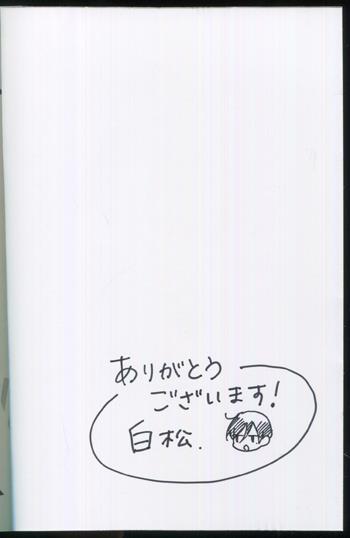 ありがとう
ございます!
白松.